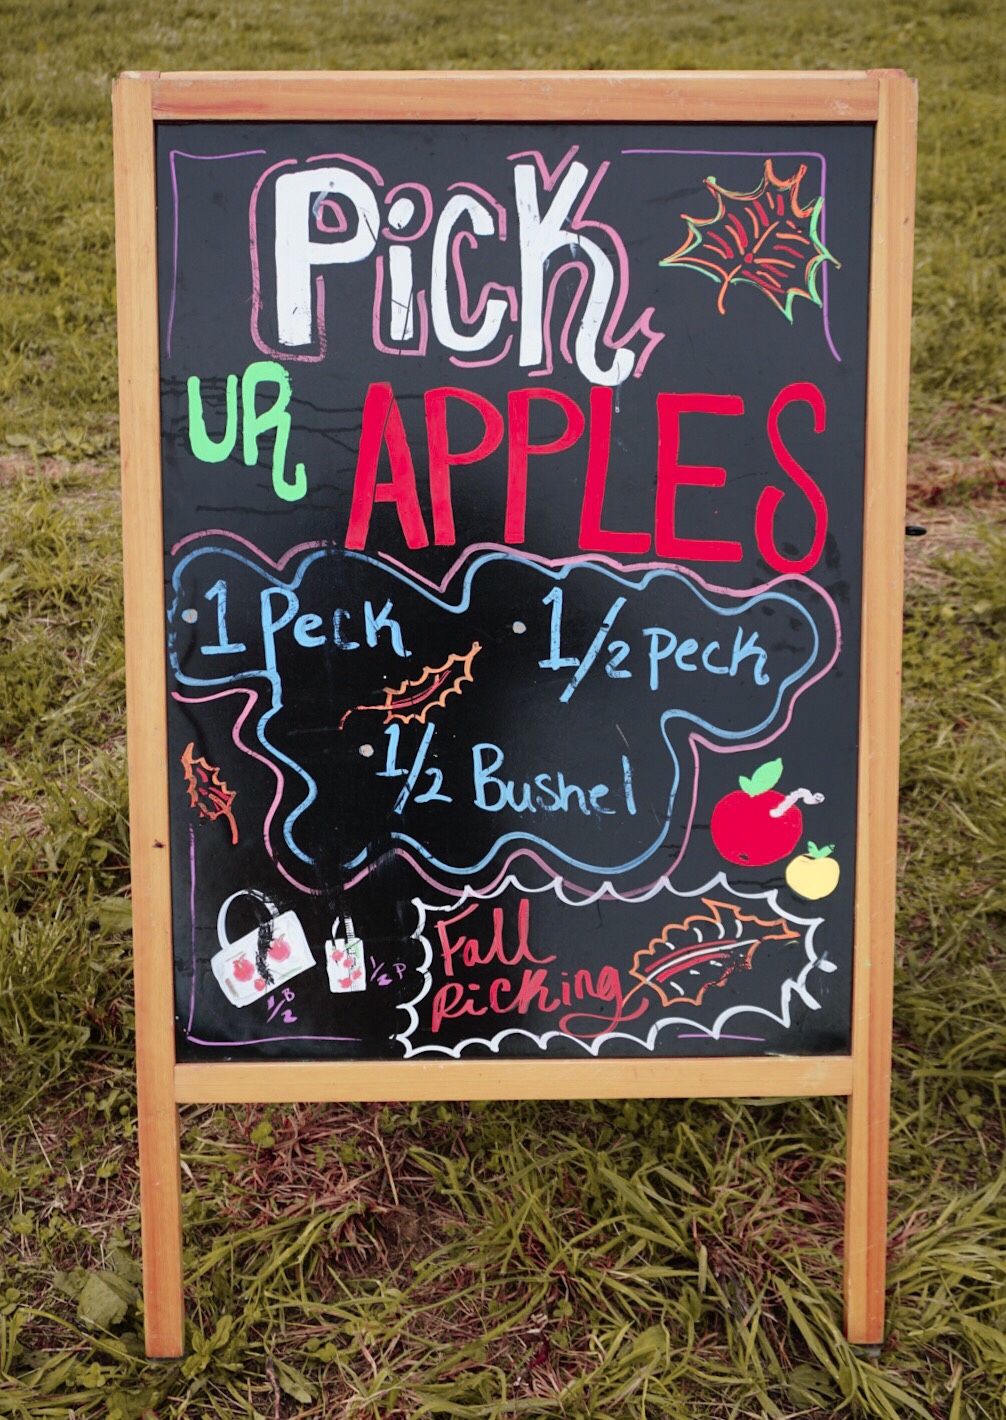 Pick
UR APPLES
1 Peck
1/2 Peck
1/2 Bushel
Fall
Picking
1/2 B
1/2 P